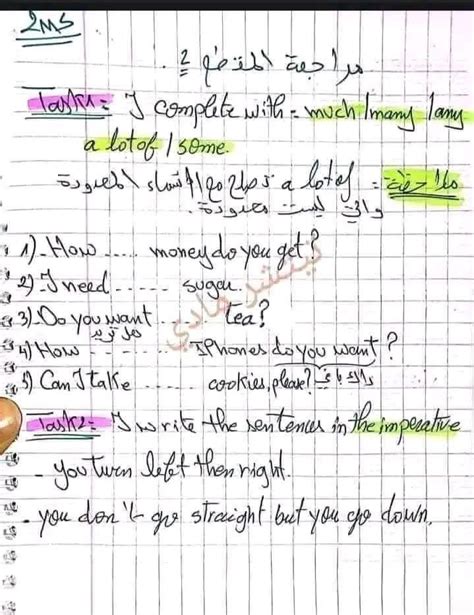 2MS
مراجعة المقطع 2
Task1= I complete with = much / many / any
a lot of / some.
ملاحظة = a lot of تصلح مع الأسماء المعدودة
والتي ليست معدودة.
1). How ..... money do you get?
2). I need ..... sugar.
3). Do you want ..... tea?
هل تريد
4) How ....... IPhones do you want?
5) Can I take ...... cookies, please?
Task2= I write the sentences in the imperative
- you turn left then right.
- you don't go straight but you go down.